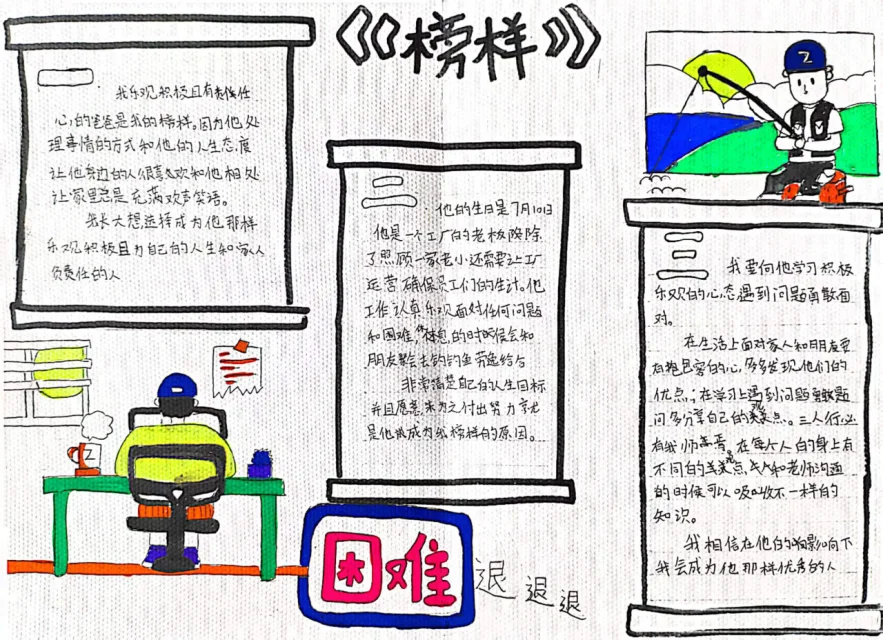 《榜样》
一
我乐观积极且有责任
心的爸爸是我的榜样。因为他处
理事情的方式和他的人生态度
让他身边的人很喜欢和他相处
让家里总是充满欢声笑语。
我长大想选择成为他那样
乐观积极且为自己的人生和家人
负责任的人
二
他的生日是7月10日
他是一个工厂的老板除
了照顾一家老小还需要让工厂
运营确保员工们的生计。他
工作认真乐观面对任何问题
和困难,休息的时候会和
朋友去钓钓鱼劳逸结合
非常清楚自己的人生目标
并且愿意未为之付出努力就
是他成为我榜样的原因。
三
我要向他学习积极
乐观的心态遇到问题勇敢面
对。
在生活上面对家人和朋友要
有抱宽容的心,多多发现他们的
优点;在学习上遇到问题勇敢题
问多分享自己的美点。三人行必
有我师焉,在每个人的身上有
不同的美点,和老师沟通
的时候可以吸收不一样的
知识。
我相信在他的影响下
我会成为他那样优秀的人
Z
Z
困难
退 退 退